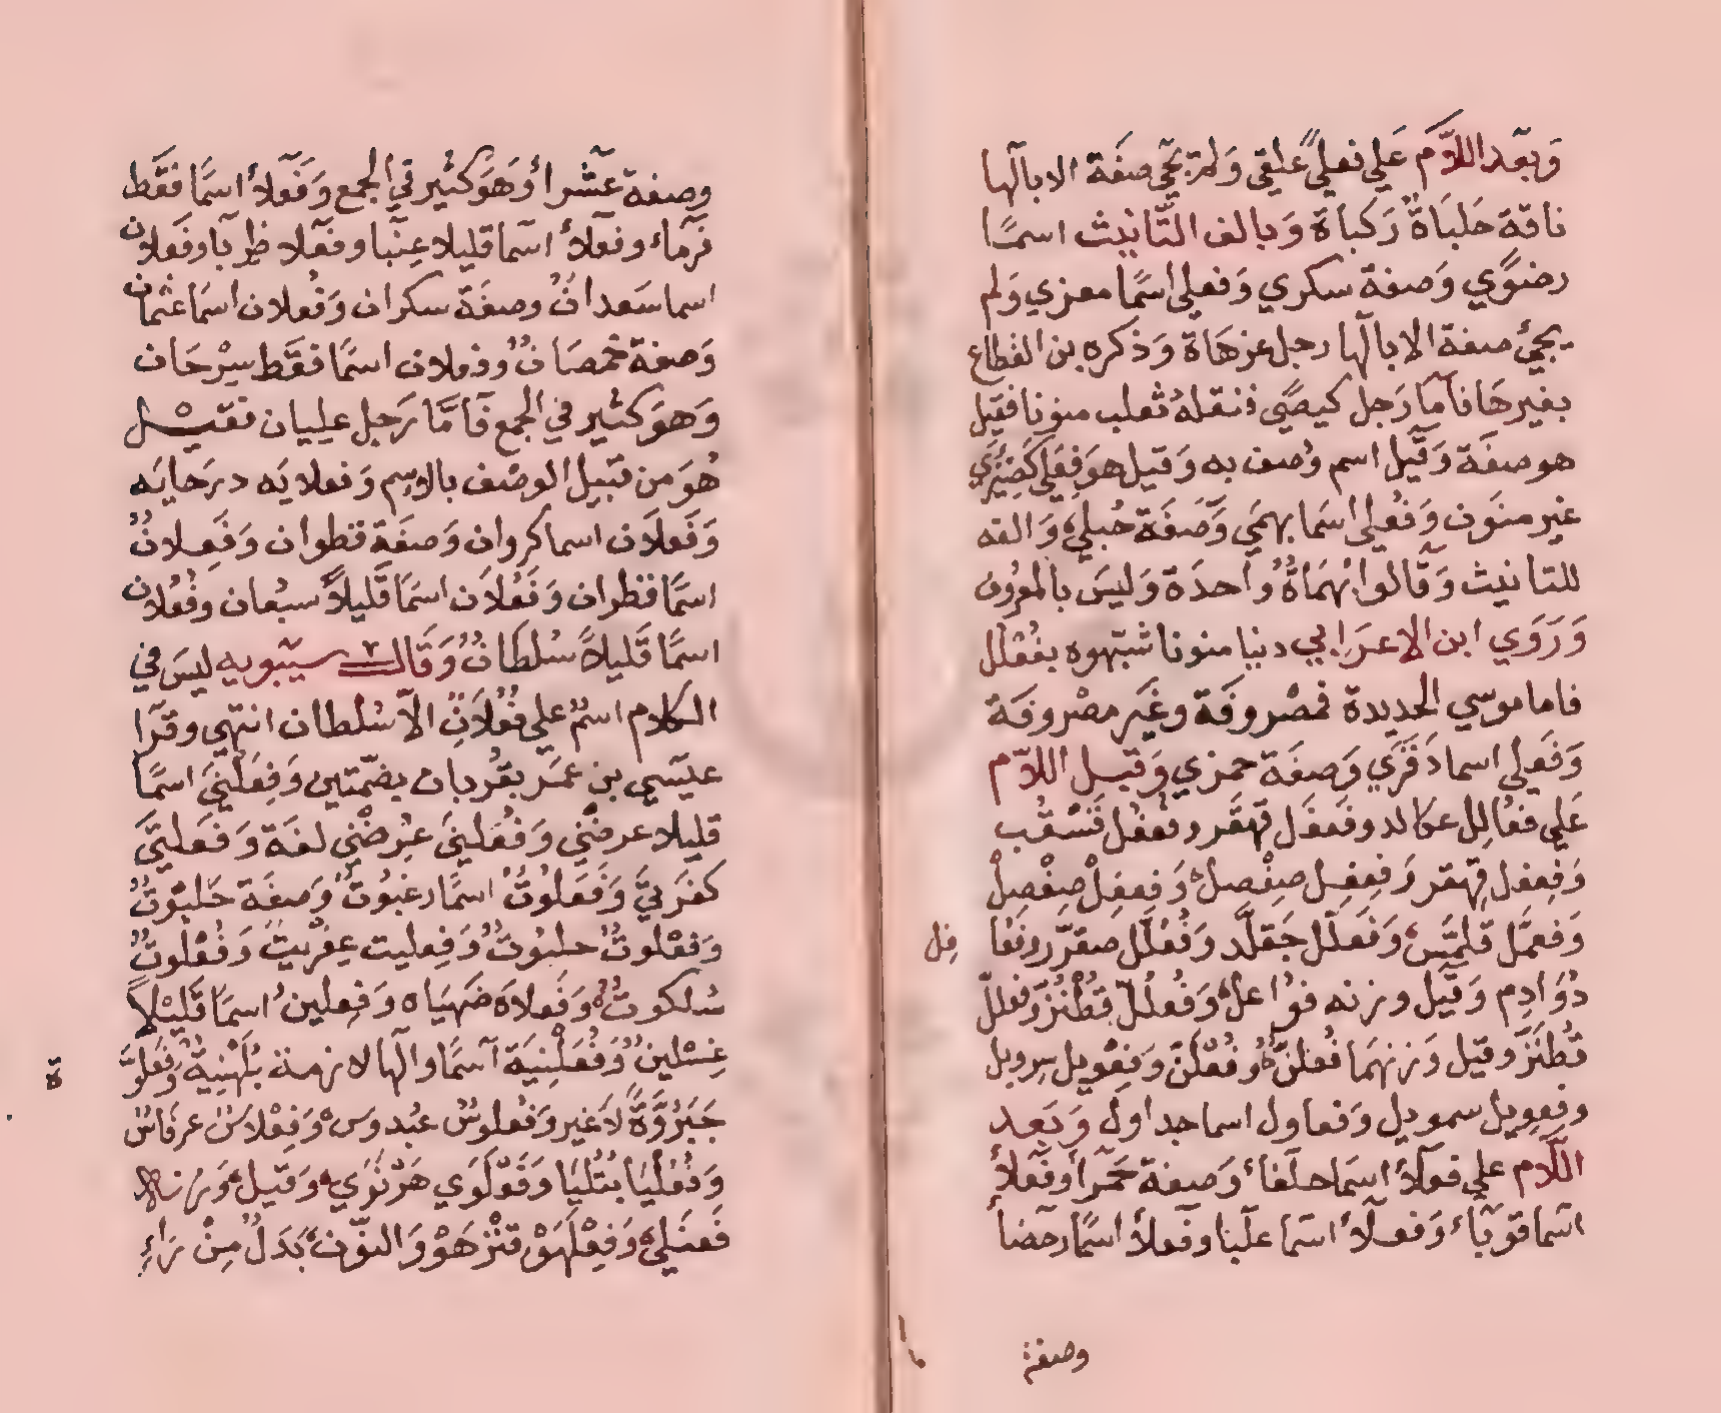 وَبعَد اللاَّم عَلي فعليً علقي وَلم يجَي صفَة الا بالها
ناقة حَلبَاةٌ رَكباة وَبالف التَّانيث اسمًا
رضوَي وَصفة سكري وَفعلي اسمًا معزي وَلم
يجيء صفة الا بالها رجل عزهَاة وَذكره بن القطاع
بغير هَا فاما رَجل كيصًي فنقلهُ ثعلب منونا فقيَل
هو صفَة وَقيَل اسم وُصف به وَقيل هوَ فِعَلي كضِيزَي
غير منوَن وَفُعلي اسمَا بهمَي وَصَفَة حُبلي وَالفه
للتانيث وَقالوا بُهمَاةٌ وُاحدَة وَليسَ بالمعرُوف
وَرَوَي ابن الاعرَابي دنيا منونا شبّهوه بفُعْلَل
فاما موسي الحديدة فمصْروفَة وغَير مصْروفَة
وَفَعَلي اسما دَقَرَي وَصفَة جمزي وَقبل اللاّم
عَلي فعَالِل عكالد وفَعفَل قَهقَر وفُعفُل قسْقُب
وَفِعفل قِهقر وَفِعفِل صِفْصِل وَفِعفِلّ صِفْصِلّ
وَفعمَّل قلمَّس وَفَعَلَّل جَقلَّد وَفُعُلَّل صقرّر وفعَا
فل
دُوَادِم وَقيَل وزنه فوَاعل وَفُعُلُلّ قطُنُزّ وَفعللّ
قُطنَزّ وقيل وَزنهمَا فُعلنٌّ وُفُعْلَنّ وَفِعْويل سِرويل
وفِعِويل سمويل وَفعاول اسما جداول وَبَعد
اللاَّم علي فعلاَءُ اسمَا حلفاء وَصفة حَمرَا وفُعَلاءُ
اسما قوبَاء وَفعلاَءُ اسمَا علبا وفعَلاءُ اسمًا رحضاءُ
وصفة
وصفة عشراءُ وَهوَ كثير في الجمع وَفَعَلاءُ اسمًا فقَط
قرمَاء وفعَلاءُ اسمَا قليلا عِنَبا وفعِلاء ظربَا وفَعلان
اسما سَعدانٌ وصفَة سكران وَفُعلان اسمَا عثمان
وَصفة خمصَانٌ وفعلان اسمًا فقَط سِرْحَان
وَهوَ كثير في الجمع فاَمَّا رَجل علِيان فقيْل
هُوَ من قبَيل الوصْف بالاسِم وَفعلايَه درَحايَه
وَفَعلَان اسما كروان وَصفَة قطوان وَفَعِلانٌ
اسمًا قطران وَفَعُلَان اسمَا قَليلاً سبُعان وفُعُلان
اسمًا قَليلاً سُلطانٌ وَقَال سيبَويه ليسَ في
الكلام اسمٌ علي فُعُلَانٍ الاّ سُلطان انتهي وقرَا
عيسَي بن عمَر بقُربان بضمّتين وَفِعَلْنيَ اسمًا
قليلا عرضْني وَفُعَلنيَ عُرضْني لغَة وَفَعَلتيَّ
كفَرَتيَّ وَفَعَلوُتٌ اسمًا رغبوُتٌ وَصفَة خَلبُوتٌ
وَفعْلوتٌ حلبُوتٌ وَفِعليت عِفْريتٌ وَفُعْلوتٌ
سُلكوتٌ وَفَعلاَة ضَهيَاه وَفِعلينٌ اسمَا قَليْلاً
غِسْلينٌ وَفُعَلْنِيَة اسمًا والها لازمة بُلَهْنيةٌ وَفَعَلوَّ
ة
جَبَرُوَّةً لاَغير وَفعلوسٌ عبُدوسٌ وَفِعْلاسٌ عرفاسٌ
وَفُعُلْيَا بُتُلْيَا وَفَعْلَوَي هَرْنَوَي وَقيل وَزنها
فَعنَلي وَفِعْلَهَوْ قنْزهَوْ وَالنوّن بَدَلٌ مِنْ رَاءٍ